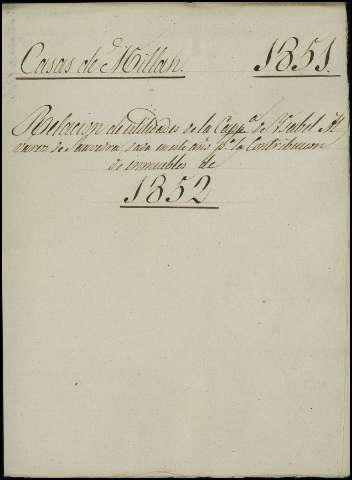 Casas de Millan. 1851.
Relacion de utilidades de la Capp.ª de Ysabel Al
varez de Saavedra dada en este año p.ª la Contribucion
de inmuebles de
1852